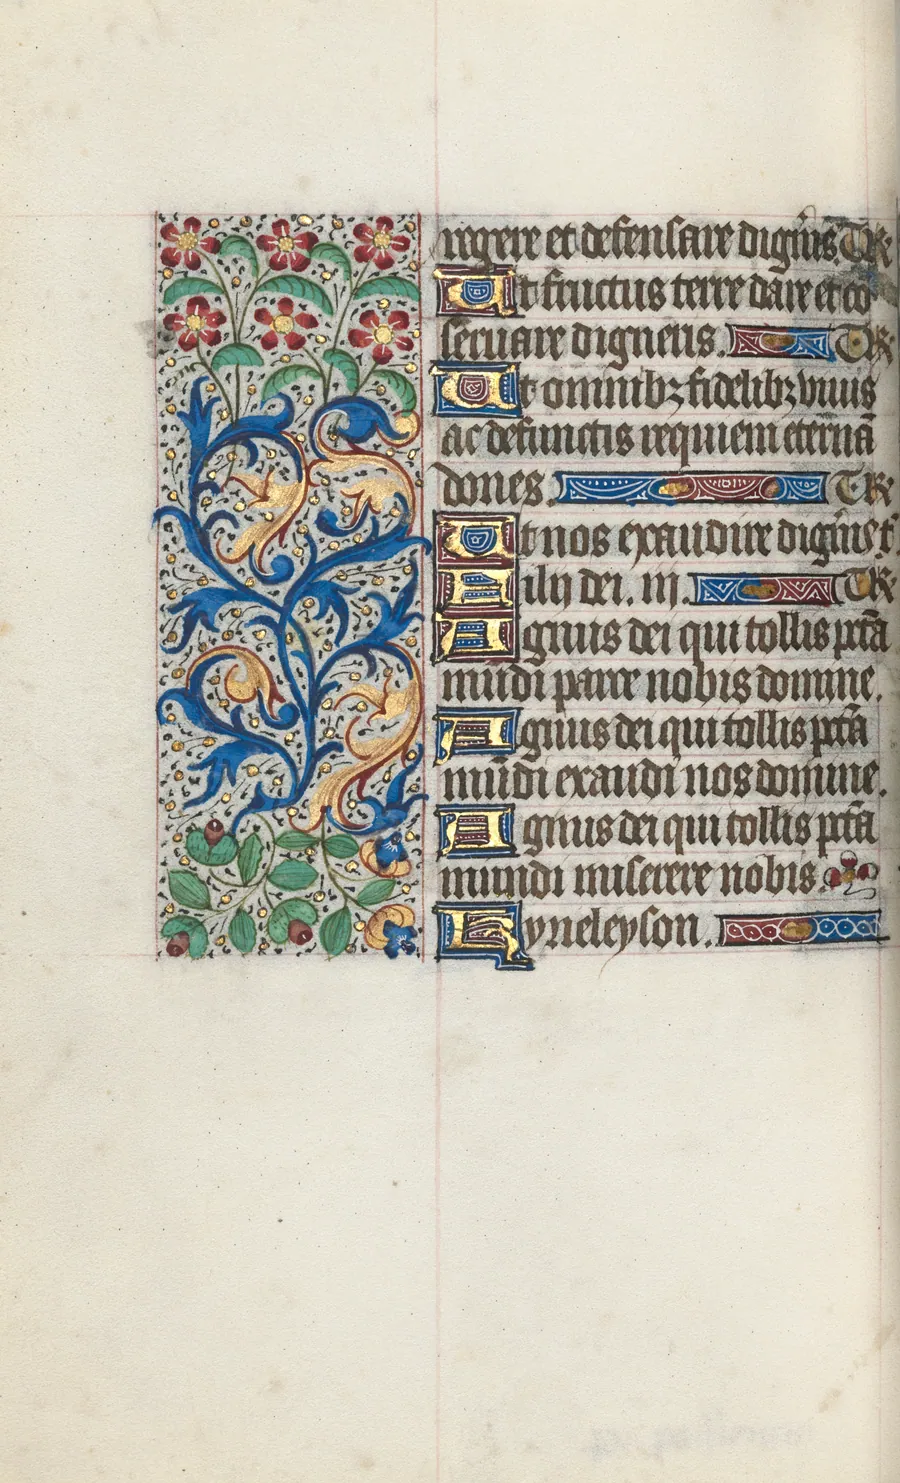 regere et defensare dignis TR
Ut fructus terre dare et co
seruare digneris. TR
Ut omnibꝫ fidelibꝫ viuis
ac defunctis requiem eternā
dones TR
Ut nos exaudire dignis t͛
Filij dei. iij. TR
Agnus dei qui tollis pctā
mūdi parce nobis domine.
Agnus dei qui tollis pctā
mūdi exaudi nos domine.
Agnus dei qui tollis pctā
mundi miserere nobis.
Kyrieleyson.